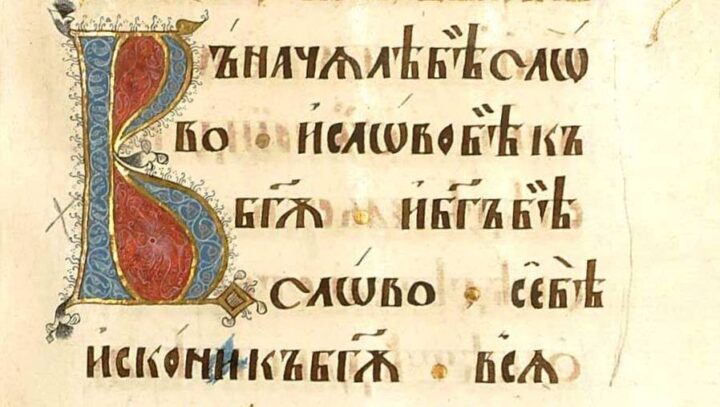 Въначѧлѣ бѣ слѡ
во · и слѡво бѣ къ
бг҃ѫ · и бг҃ъ бѣ
слѡво · се бѣ
искони къ бг҃ѫ · всѧ